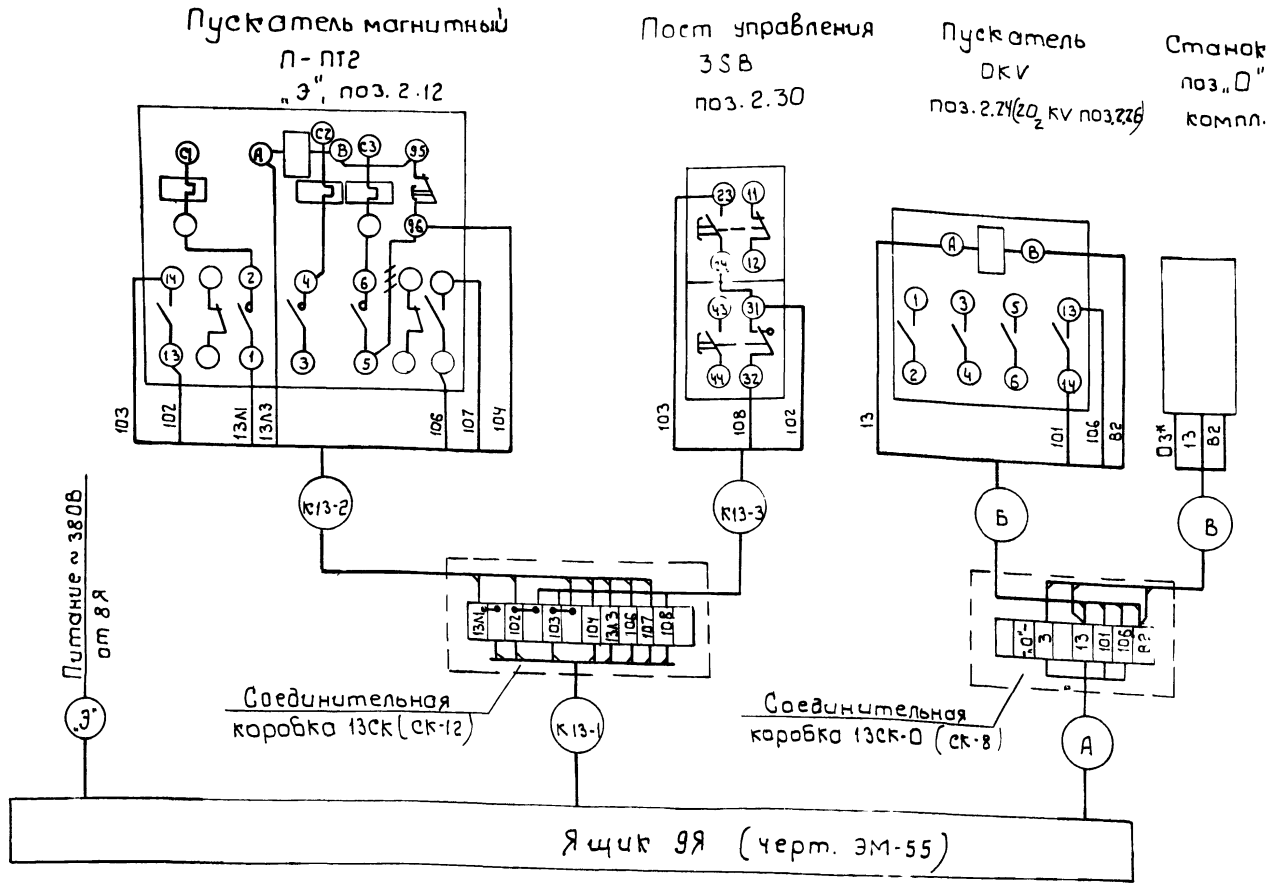 Пускатель магнитный
П-ПТ2
„Э", поз. 2.12
Пост управления
3SВ
поз. 2.30
Пускатель
DKV
поз. 2.24(2O₂ KV поз.2.26)
Станок
поз„О"
компл.
С1
А
С2
В
С3
95
96
14
2
4
6
13
1
3
5
103
102
13Л1
13Л3
106
107
104
23
11
24
12
43
31
44
32
103
108
102
А
В
1
3
5
13
2
4
6
14
13
101
106
В2
О3*
13
В2
К13-2
К13-3
Б
В
Питание ~ 380В
от 8Я
13Л1
102
103
104
13Л3
106
107
108
„О"-
3
13
101
106
В2
Соединительная
коробка 13СК (СК-12)
Соединительная
коробка 13СК-О (СК-8)
„Э"
К13-1
А
Ящик 9Я (черт. ЭМ-55)